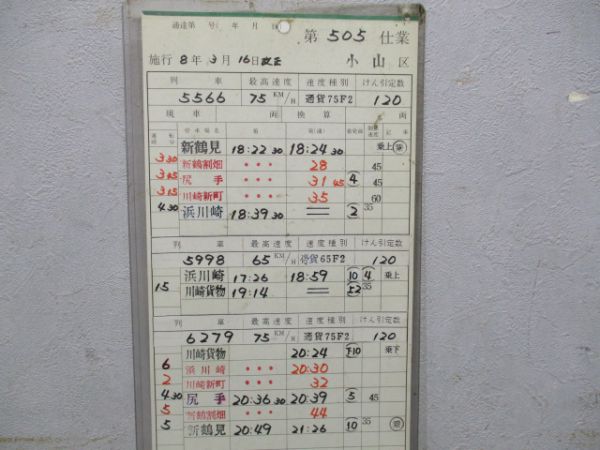 通達第 号( 年 月 日)
第 505 仕業
施行 8年 3月 16日改正 小山 区
列 車 最高速度 速度種別 けん引定数
5566 75 KM/H 通貨75F2 120
現車 両 換算 両
新鶴見 18:22 30 18:24 30 乗上
3 30 新鶴割畑 ・・・ 28 45
3 45 尻手 ・・・ 31 45 4 45
3 15 川崎新町 ・・・ 35 60
4 30 浜川崎 18:39 30 = 2 35
列 車 最高速度 速度種別 けん引定数
5998 65 KM/H 停貨65F2 120
浜川崎 17:26 18:59 10 4 乗上
15 川崎貨物 19:14 = 52 35
列 車 最高速度 速度種別 けん引定数
6279 75 KM/H 通貨75F2 120
川崎貨物 20:24 下10 乗下
6 浜川崎 ・・・ 20:30
2 川崎新町 ・・・ 32
4 30 尻手 20:36 30 20:39 5 45
5 新鶴割畑 ・・・ 44
5 新鶴見 20:49 21:26 10 35